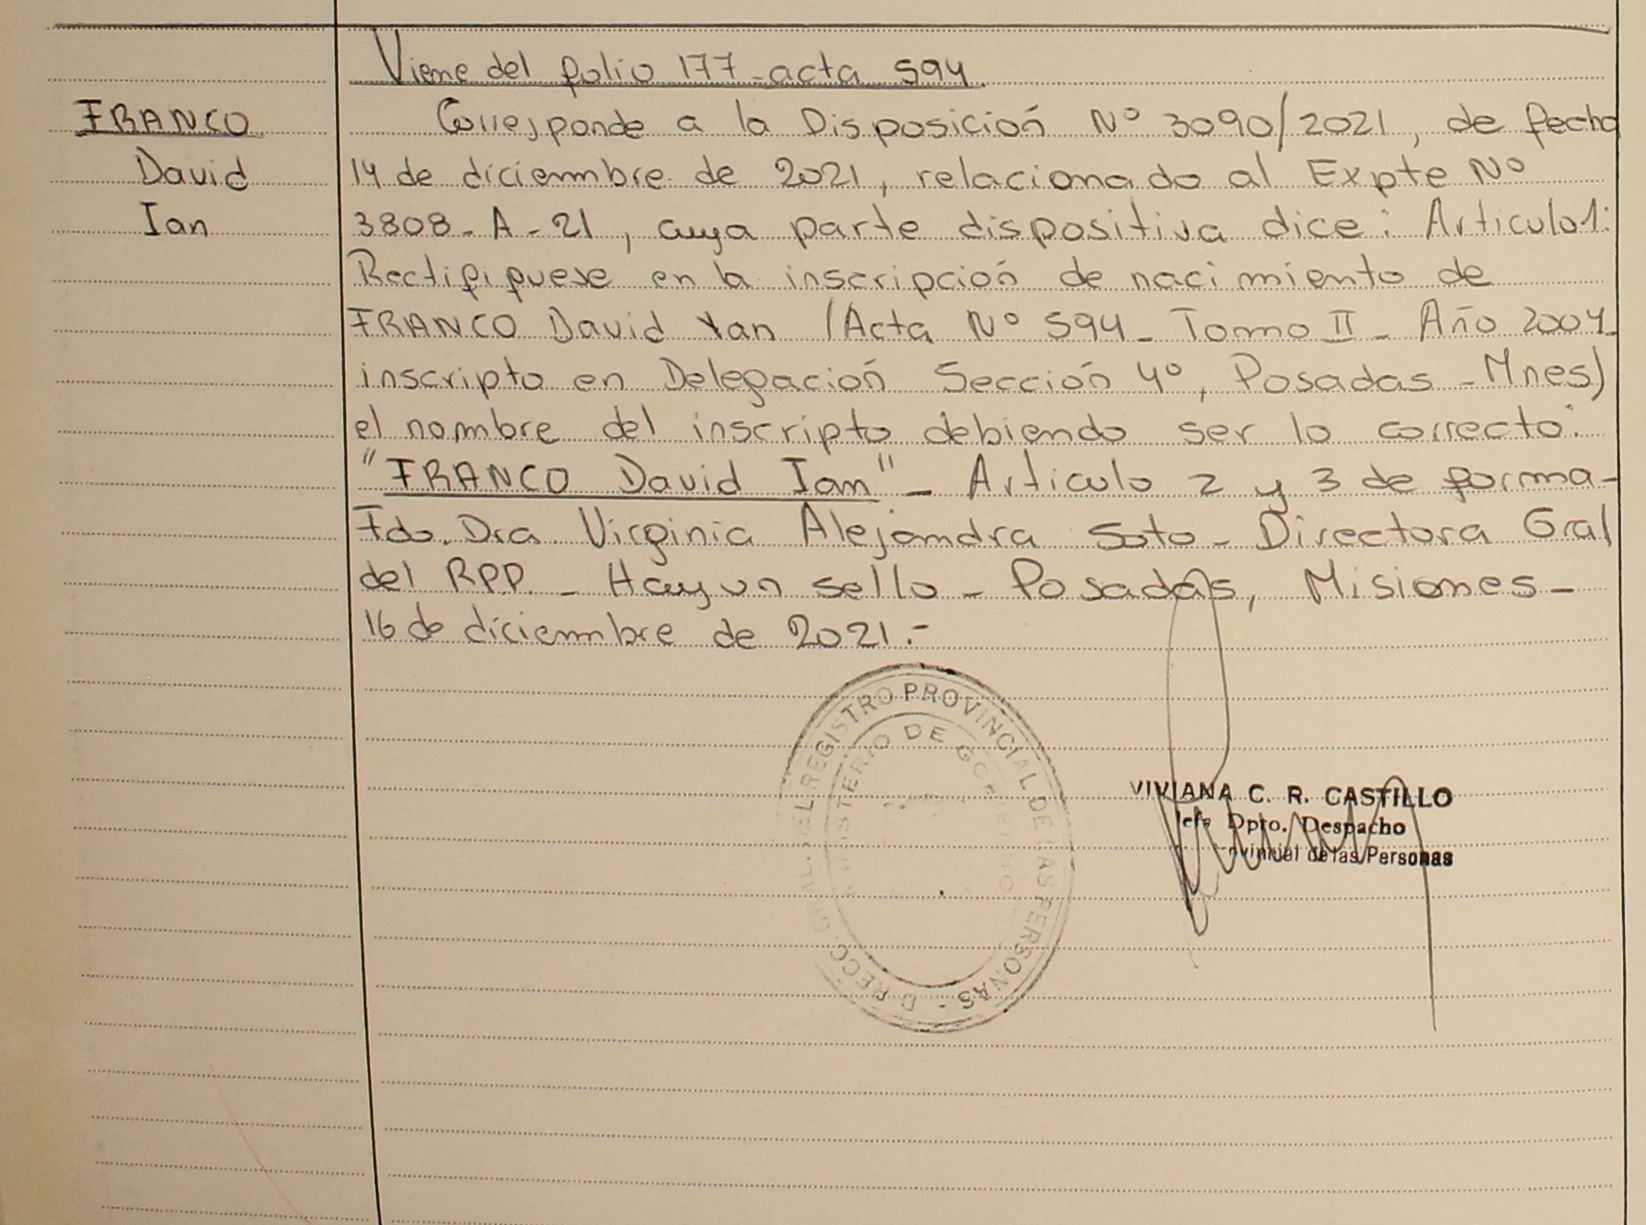 Viene del folio 177-acta 594.
FRANCO
David
Ian
Corresponde a la Disposición Nº 3090/2021, de fecha
14 de diciembre de 2021, relacionado al Expte Nº
3808-A-21, cuya parte dispositiva dice: Articulo 1:
Rectifiquese en la inscripción de nacimiento de
FRANCO David Yan (Acta Nº 594_ Tomo II_ Año 2004_
inscripto en Delegación Sección 4º, Posadas - Mnes)
el nombre del inscripto debiendo ser lo correcto:
"FRANCO David Ian"_ Articulo 2 y 3 de forma-
Fdo. Dra. Virginia Alejandra Soto_ Directora Gral
del RPP._ Hay un sello_ Posadas, Misiones_
16 de diciembre de 2021.-
REGISTRO PROVINCIAL DE LAS PERSONAS -
MINISTERIO DE GOBIERNO
VIVIANA C. R. CASTILLO
Jefa Dpto. Despacho
de las Personas